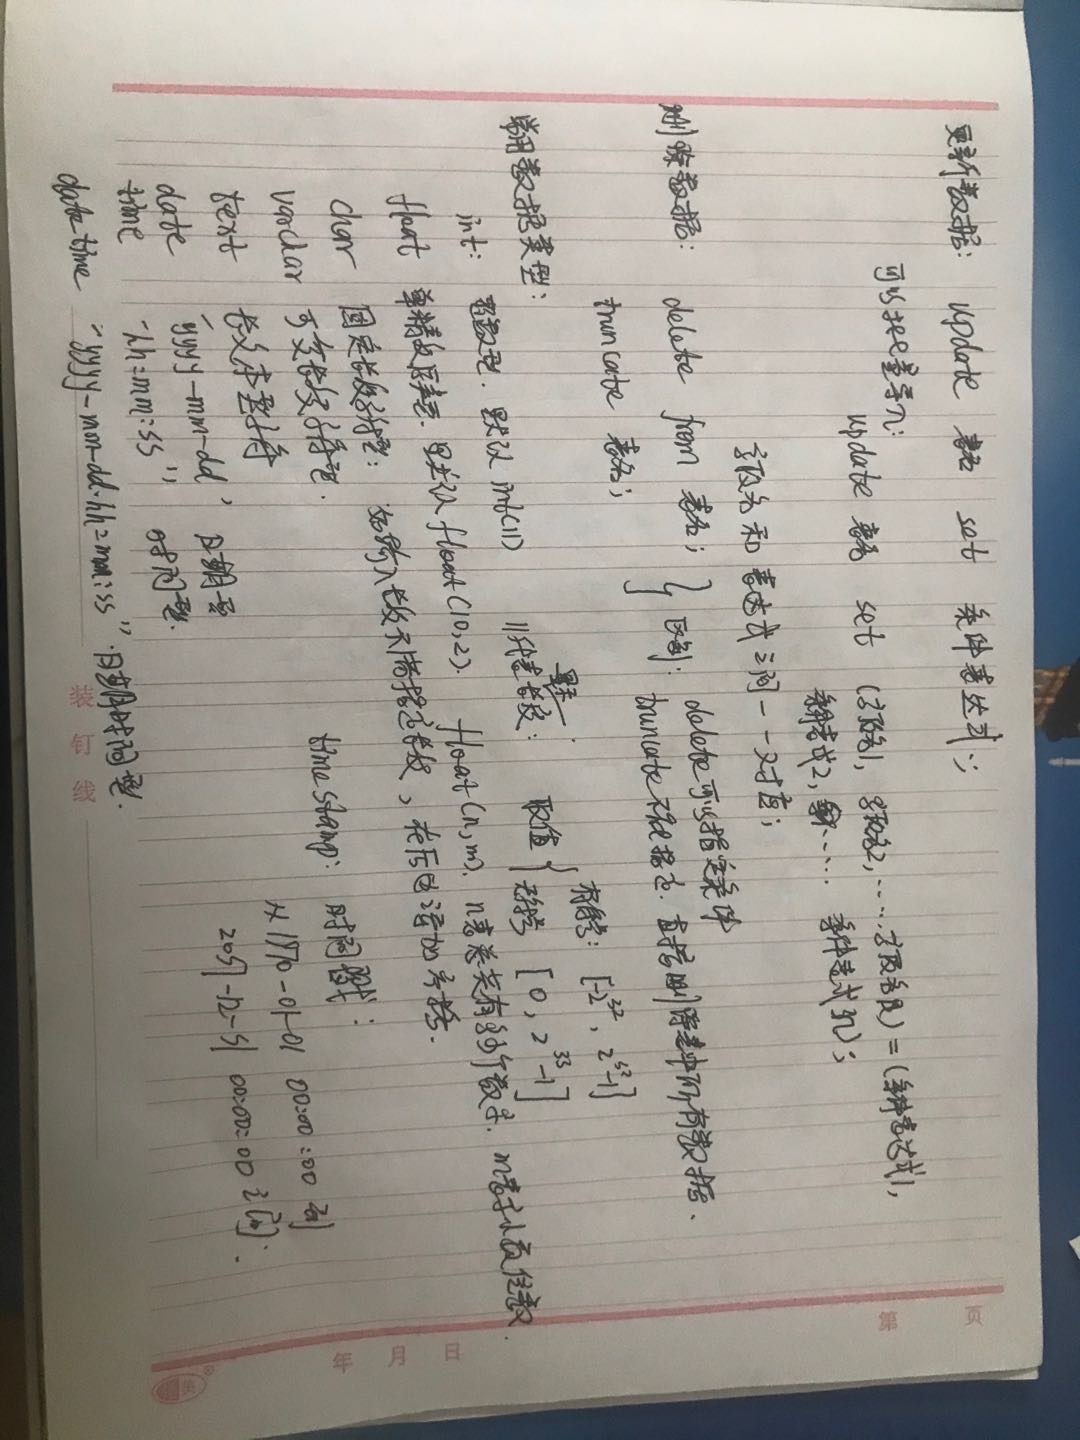 更新数据: update 表名 set 条件表达式;
可以批量导入:
update 表名 set (字段名1, 字段名2, ……字段名n) = (条件表达式1,
条件表式2, …… 条件表式n);
字段名和表达式之间一一对应;
删除数据: delete from 表名; } 区别: delete可以指定条件
truncate 表名; truncate不能指定.直接删除表中所有数据.
常用数据类型:
int: 整数型. 默认int(11) 11代表长度: 取值{ 有符号: [-2^32, 2^32-1]
无符号 [0, 2^33-1]
float 单精度浮点型. 默认float(10,2). float(n,m). n表总共有多少个数字. m表示小数位数.
char 固定长度字符型: 如输入长度不满指定长度, 在后面添加空格.
varchar 可变长度字符型.
text 长文本型字符
date 'yyyy-mm-dd' 日期型
time "hh:mm:ss" 时间型.
datetime "yyyy-mm-dd.hh:mm:ss" .日期时间型.
timestamp: 时间戳:
从1970-01-01 00:00:00 到
2037-12-31 00:00:00 之间.
装订线
第 页
年 月 日